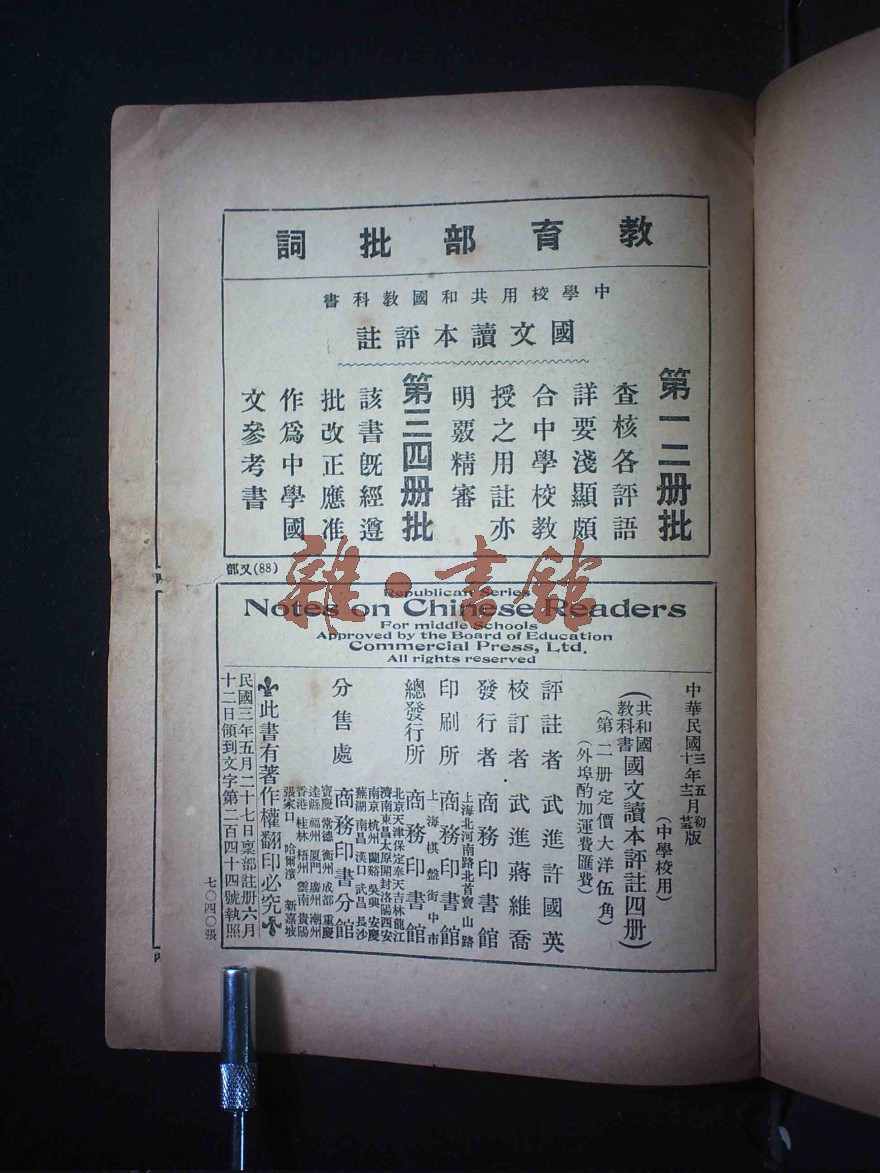 教育部批詞
中學校用共和國教科書
國文讀本評註
第一二册批
查核各評語
詳要淺顯頗
合中學校教
授之用註亦
明覈精審
第三四册批
該書旣經遵
批改正應准
作爲中學國
文參考書
部又(88)
雜·書館
Republican Series
Notes on Chinese Readers
For middle Schools
Approved by the Board of Education
Commercial Press, Ltd.
All rights reserved
中華民國
三年五月初版
(中學校用)
(共和國教科書國文讀本評註四册)
(第二册定價大洋伍角)
(外埠酌加運費匯費)
評註者 武進許國英
校訂者 武進蔣維喬
發行者 商務印書館
上海北河南路北首寶山路
印刷所 商務印書館
上海棋盤街中市
總發行所 商務印書館
北京天津保定奉天吉林龍江
濟南東昌太原開封洛陽西安
南京杭州蘭谿吳興安慶
蕪湖南昌漢口武昌長沙
分售處 商務印書分館
寶慶常德衡州成都重慶
達縣福州厦門廣州潮州
香港桂林梧州雲南貴陽
張家口 哈爾濱 新嘉坡
此書有著作權翻印必究
民國三年五月二十七日稟部註册六月
十二日領到文字第二百四十四號執照
七〇四〇張